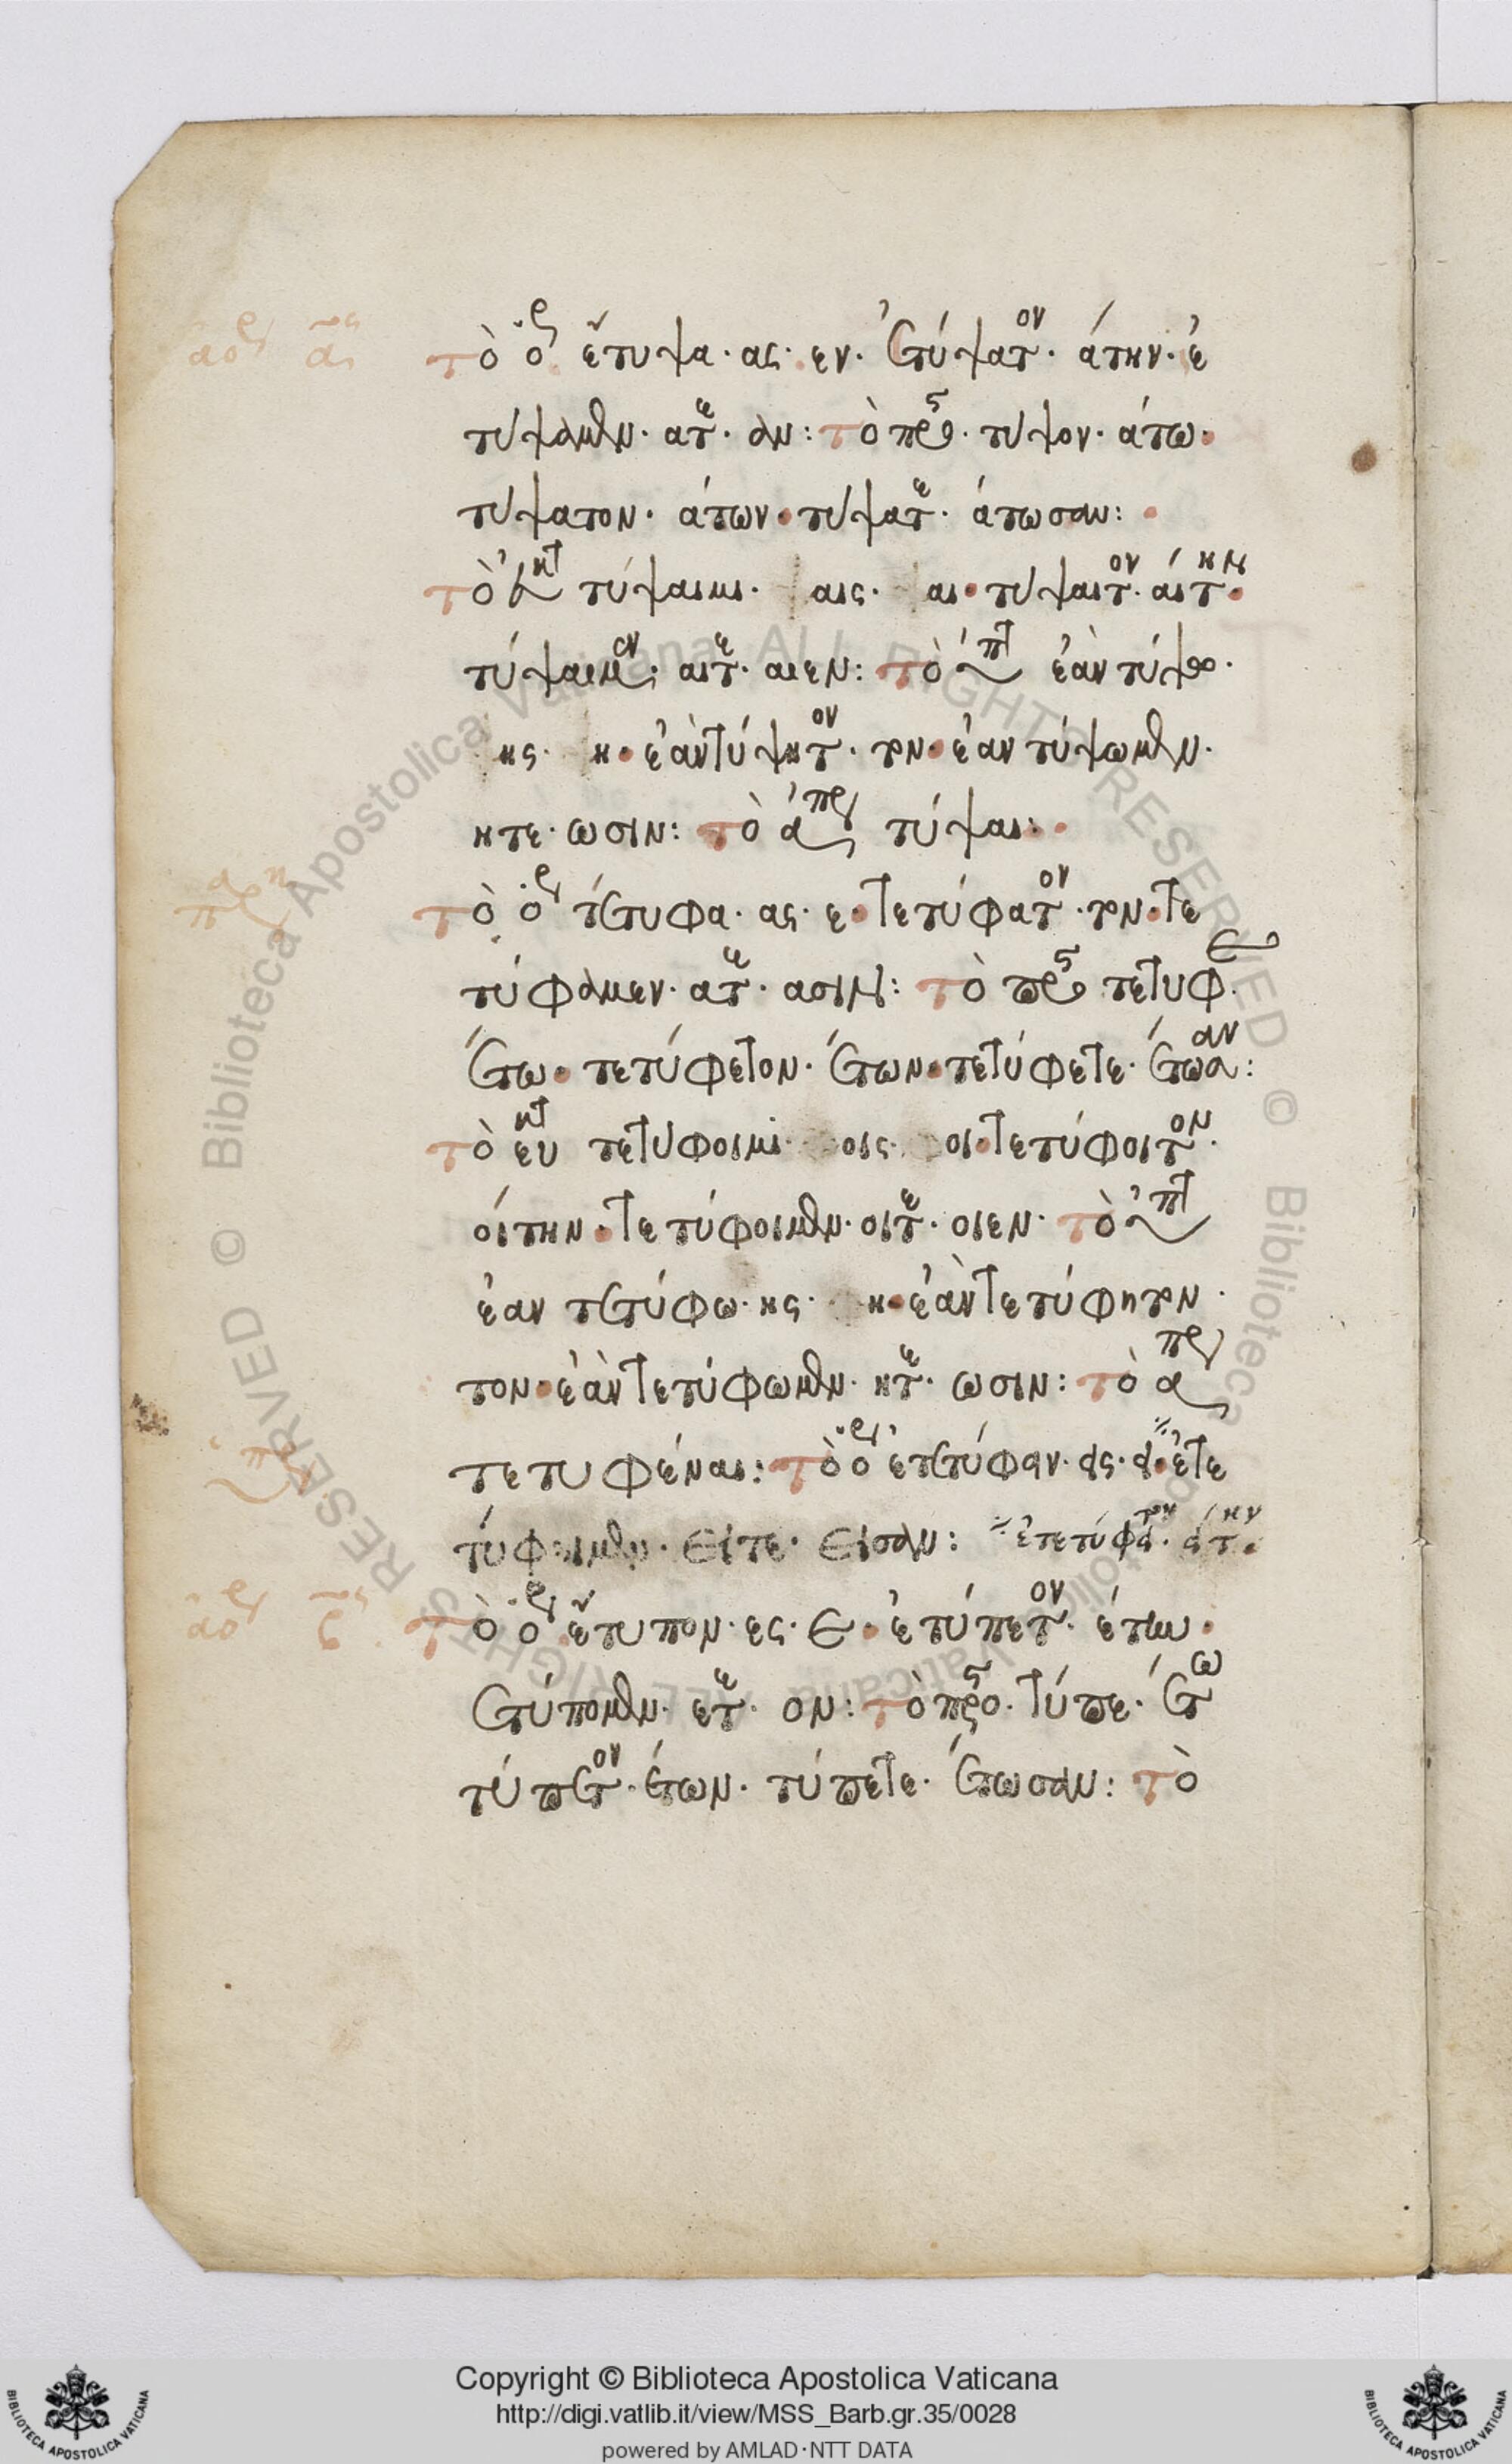 τὸ ὁρ ἔτυψα· ας· εν· ἐτύψατον· άτην· ἐ
τύψαμεν· ατε· αν: τὸ προς· τυψον· άτω·
τύψατον· άτων· τύψατε· άτωσαν:
τὸ εὐκτ τύψαιμι· αις· αι· τύψαιτον· αίτην·
τύψαιμεν· αιτε· αιεν: τὸ ὑπτ ἐὰν τύψω·
ης· η· ἐὰν τύψητον· τον· ἐαν τύψωμεν·
ητε· ωσιν: τὸ ἀπαρ τύψαι:
τὸ ὁρ τέτυφα· ας· ε· τετύφατον· τον· τε
τύφαμεν· ατε· ασιν: τὸ προς τέτυφε·
έτω· τετύφετον· έτων· τετύφετε· έτωσαν:
τὸ εὐκτ τετύφοιμι· οις· οι· τετύφοιτον·
οίτην· τετύφοιμεν· οιτε· οιεν· τὸ ὑπτ
ἐαν τετύφω· ης· η· ἐὰν τετύφητον·
τον· ἐὰν τετύφωμεν· ητε· ωσιν: τὸ απαρ
τετυφέναι: τὸ ὁρ ἐτετύφειν· εις· ει· ἐτε
τύφειμεν· ειτε· εισαν: ἐτετύφειτον· είτην·
τὸ ὁρ ἔτυπον· ες· ε· ἐτύπετον· έτην·
ἐτύπομεν· ετε· ον: τὸ προς· τύπε· έτω
τύπετον· έτων· τύπετε· έτωσαν: τὸ
Copyright © Biblioteca Apostolica Vaticana
http://digi.vatlib.it/view/MSS_Barb.gr.35/0028
powered by AMLAD·NTT DATA